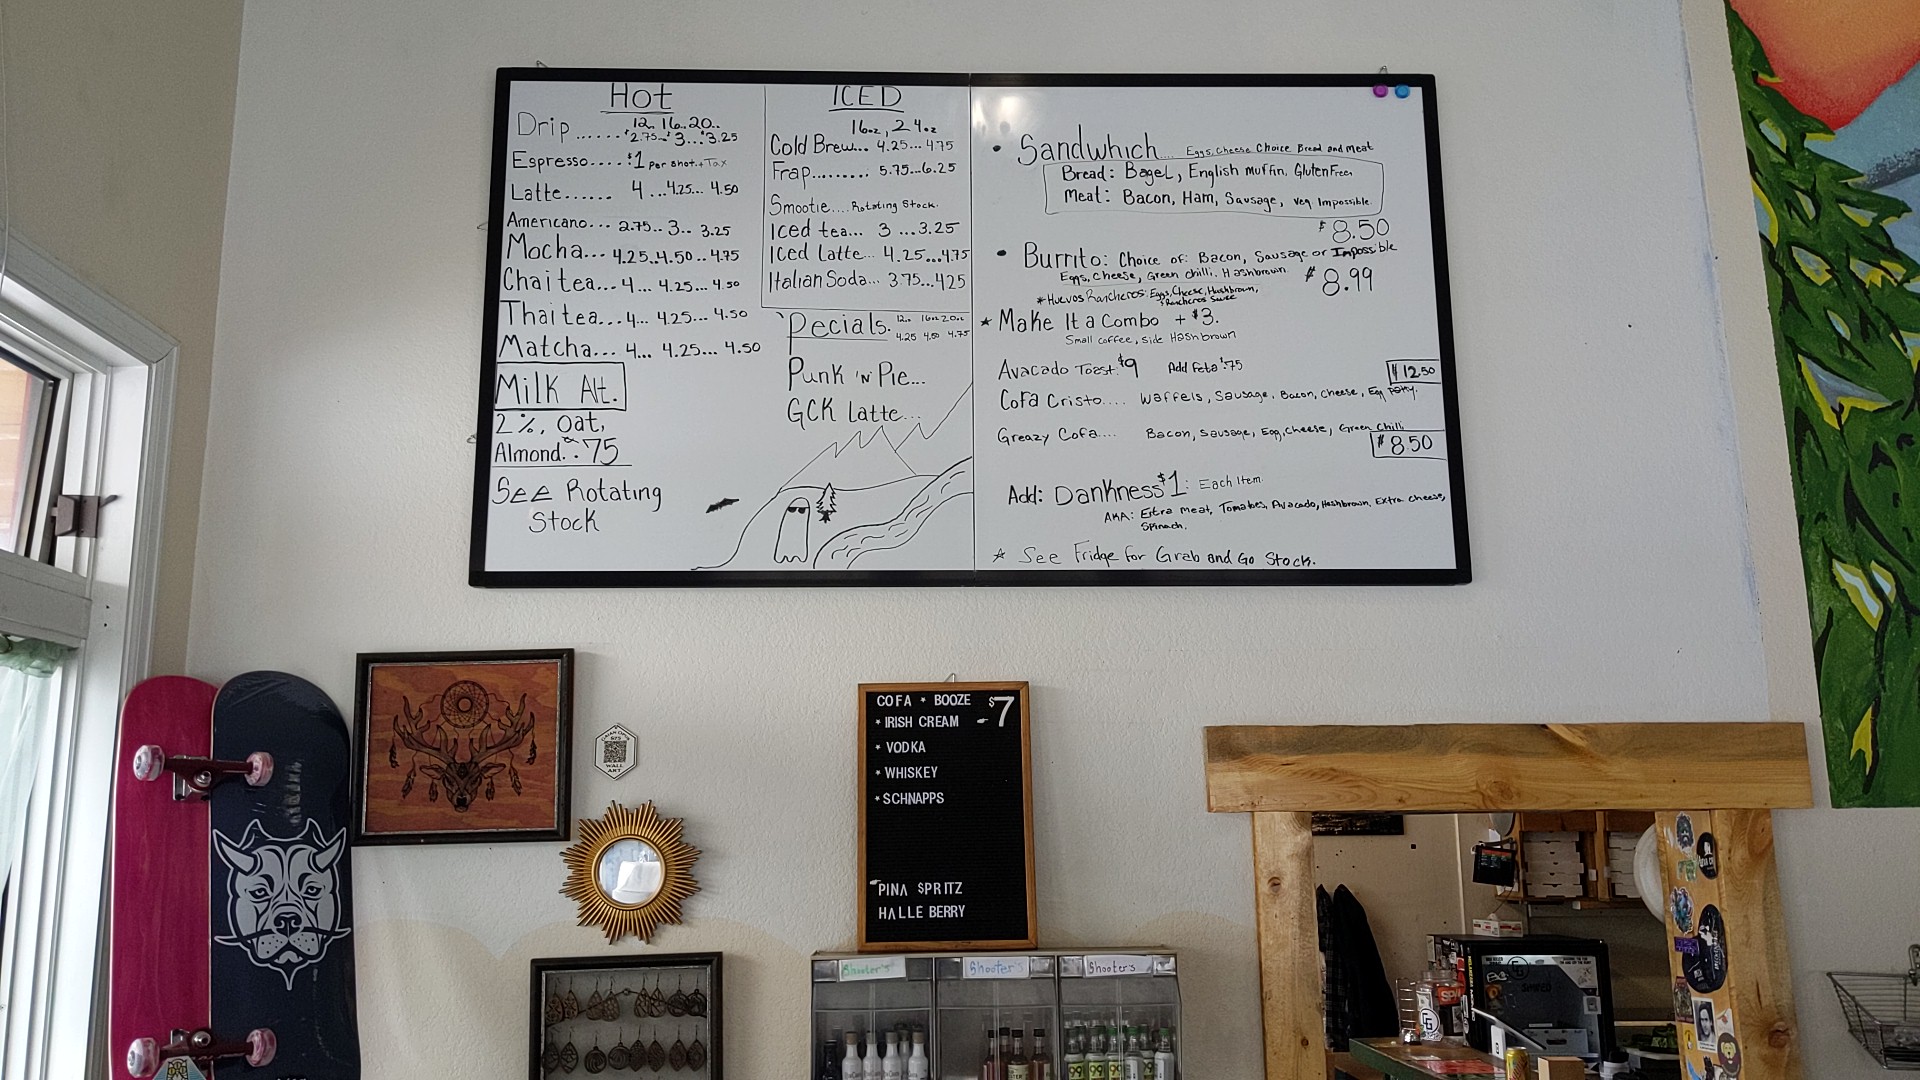 Hot
12. 16. 20..
Drip ...... $2.75...$3...$3.25
Espresso.... $1 per shot.+Tax
Latte...... 4 ...4.25... 4.50
Americano... 2.75.. 3.. 3.25
Mocha... 4.25..4.50..4.75
Chai tea...4... 4.25... 4.50
Thai tea...4... 4.25... 4.50
Matcha... 4... 4.25... 4.50
Milk Alt.
2%, Oat,
Almond. . 75
See Rotating
Stock
ICED
16oz, 24oz
Cold Brew... 4.25...4.75
Frap......... 5.75...6.25
Smootie.... Rotating Stock.
Iced tea... 3 ...3.25
Iced Latte... 4.25...4.75
Italian Soda... 3.75...4.25
Specials. 12oz 16oz 20oz
4.25 4.50 4.75
Punk 'N' Pie...
GCK Latte...
• Sandwhich.... Eggs, Cheese Choice Bread and Meat
Bread: Bagel, English muffin, Gluten Free
Meat: Bacon, Ham, Sausage, Veg Impossible.
$8.50
• Burrito: Choice of: Bacon, Sausage or Impossible
Eggs, Cheese, Green chilli, Hashbrown $8.99
*Huevos Rancheros: Eggs, Cheese, Hashbrown,
* Make It a Combo + $3.
Small coffee, side Hashbrown
Avacado Toast $9 Add Feta $.75
$12.50
Cofa Cristo.... Waffels, Sausage, Bacon, Cheese, Egg patty.
Greazy Cofa.... Bacon, Sausage, Egg, Cheese, Green Chilli
$8.50
Add: Dankness $1: Each Item
AKA: Extra meat, Tomatoes, Avacado, Hashbrown, Extra cheese,
Spinach.
* See Fridge for Grab and Go Stock.
COFA * BOOZE $7
* IRISH CREAM -
* VODKA
* WHISKEY
* SCHNAPPS
PINA SPRITZ
HALLE BERRY
WALL
ART
Shooter's
Shooter's
Shooter's